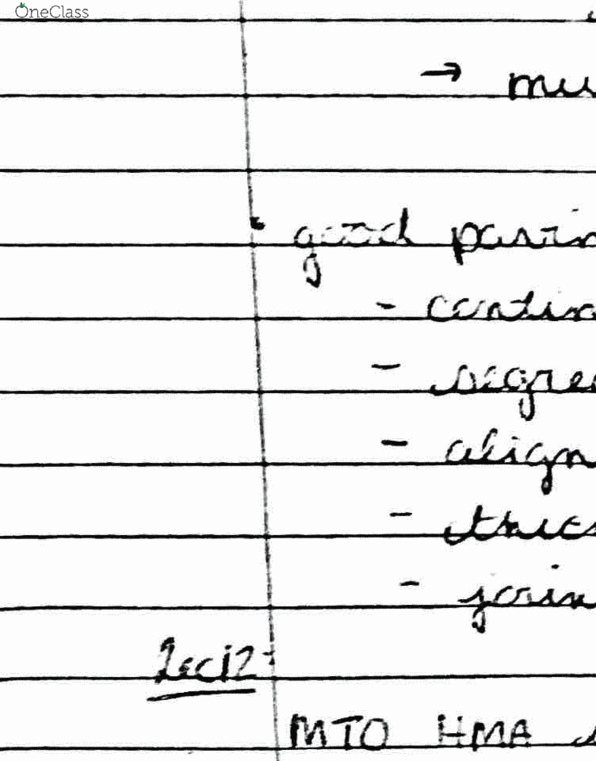 OneClass
→ mu
• good pavin
- contin
- segre
- align
- thick
- join
Lec 12:
MTO HMA